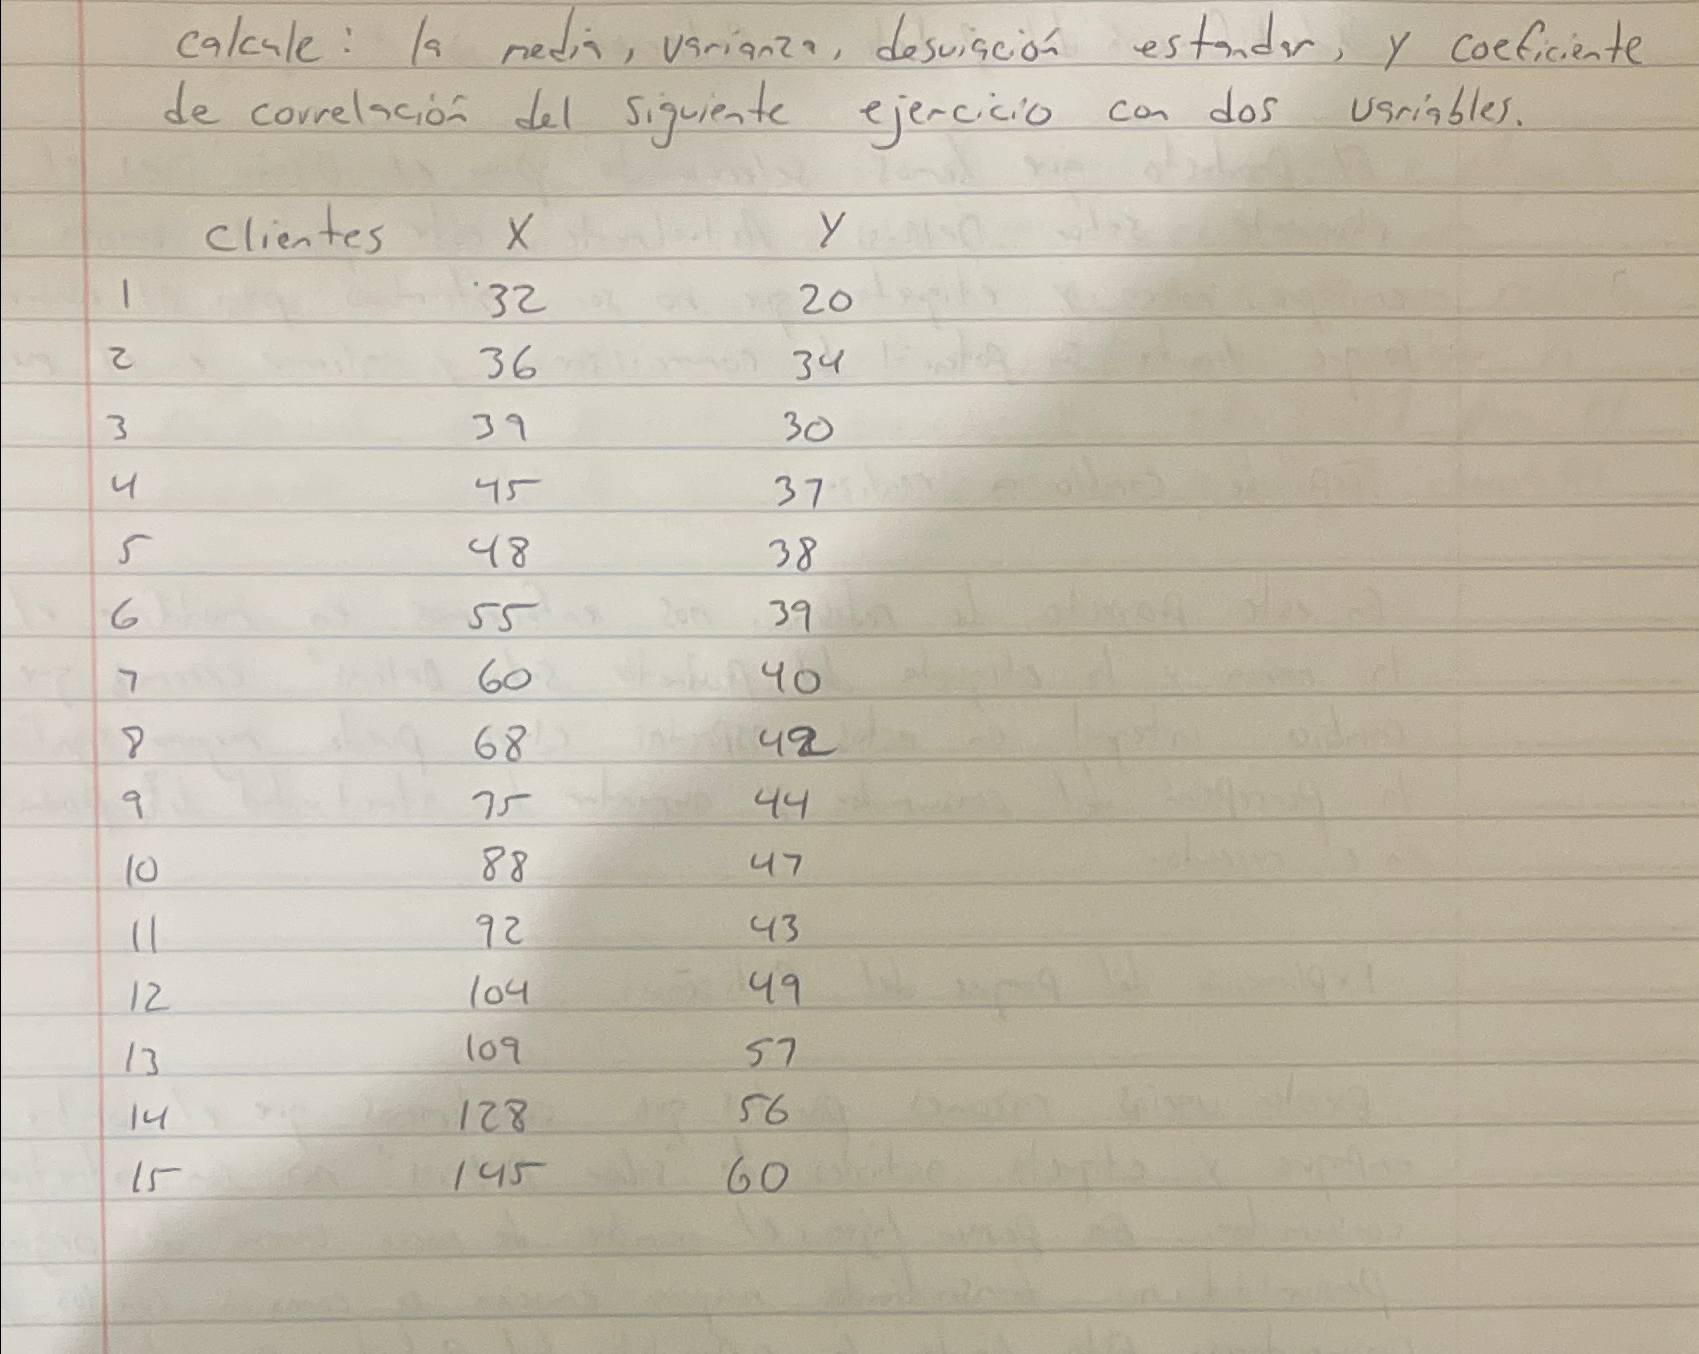 calcule: la media, varianza, desviación estandar, y coeficiente
de correlación del siguiente ejercicio con dos variables.
clientes X Y
1 32 20
2 36 34
3 39 30
4 45 37
5 48 38
6 55 39
7 60 40
8 68 42
9 75 44
10 88 47
11 92 43
12 104 49
13 109 57
14 128 56
15 145 60